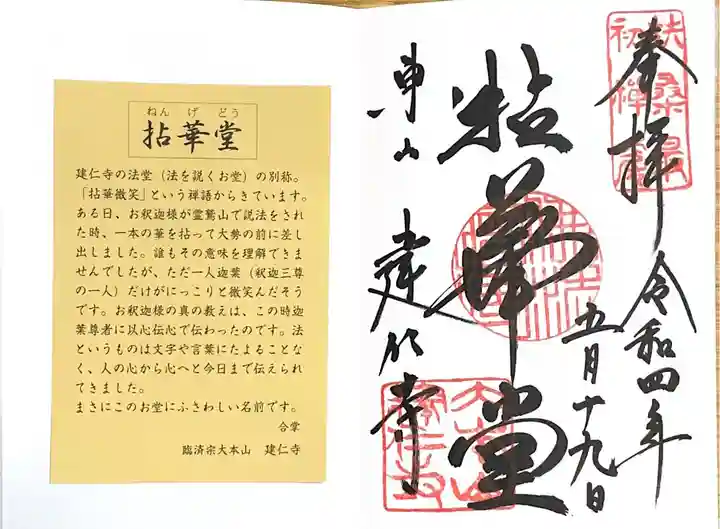 奉拝
令和四年
五月十九日
拈華堂
東山
建仁寺
扶桑最
初禅窟
ねんげどう
拈華堂
建仁寺の法堂（法を説くお堂）の別称。
「拈華微笑」という禅語からきています。
ある日、お釈迦様が霊鷲山で説法をされ
た時、一本の華を拈って大勢の前に差し
出しました。誰もその意味を理解できま
せんでしたが、ただ一人迦葉（釈迦三尊
の一人）だけがにっこりと微笑んだそう
です。お釈迦様の真の教えは、この時迦
葉尊者に以心伝心で伝わったのです。法
というものは文字や言葉にたよることな
く、人の心から心へと今日まで伝えられ
てきました。
まさにこのお堂にふさわしい名前です。
合掌
臨済宗大本山　建仁寺